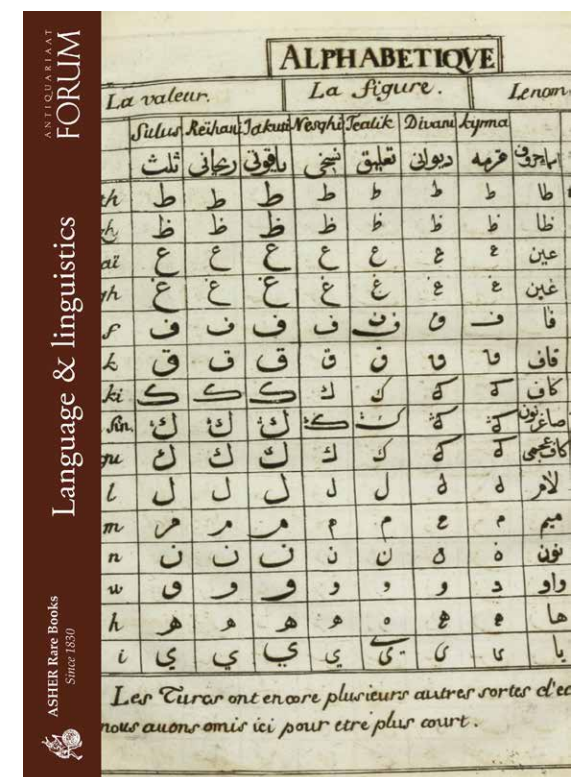 ANTIQUARIAAT
FORUM
Language & linguistics
ASHER Rare Books
Since 1830
ALPHABETIQVE
La valeur. La figure. Le nom
Sulus Reïhani Jakuti Nesghi Tealik Divani kyrma
ثلث ريحانی ياقوتی نسخی تعليق ديوانی قرمه
th ط ط ط ط ط ط ط طا
ظ ظ ظ ظ ظ ظ ظ ظا
aï ع ع ع ع ع ع ع عين
gh غ غ غ غ غ غ غ غين
f ف ف ف ف ف ف ف فا
k ق ق ق ق ق ق ق قاف
ki ك ك ك ك ك ك ك كاف
ڭ ڭ ڭ ڭ ڭ ڭ ڭ صاغر نون
gu ك ك ك ك ك ك ك كاف عجمی
l ل ل ل ل ل ل ل لام
m م م م م م م م ميم
n ن ن ن ن ن ن ن نون
w و و و و و و و واو
h ه ه ه ه ه ه ه ها
i ي ي ي ي ي ي ي يا
Les Turcs ont encore plusieurs autres sortes d'ec
nous avons omis ici pour etre plus court.